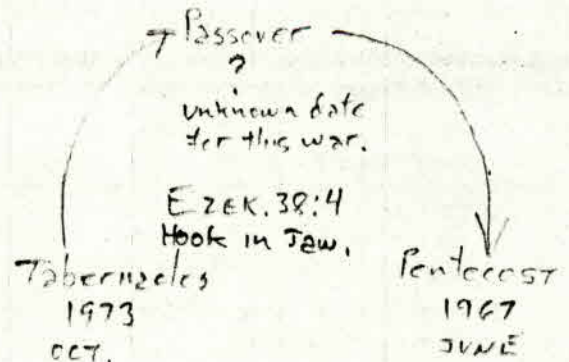 Passover
?
unknown date
for this war.
EZEK. 38:4
Hook in Jaw.
Tabernacles
1973
OCT.
Pentecost
1967
JUNE